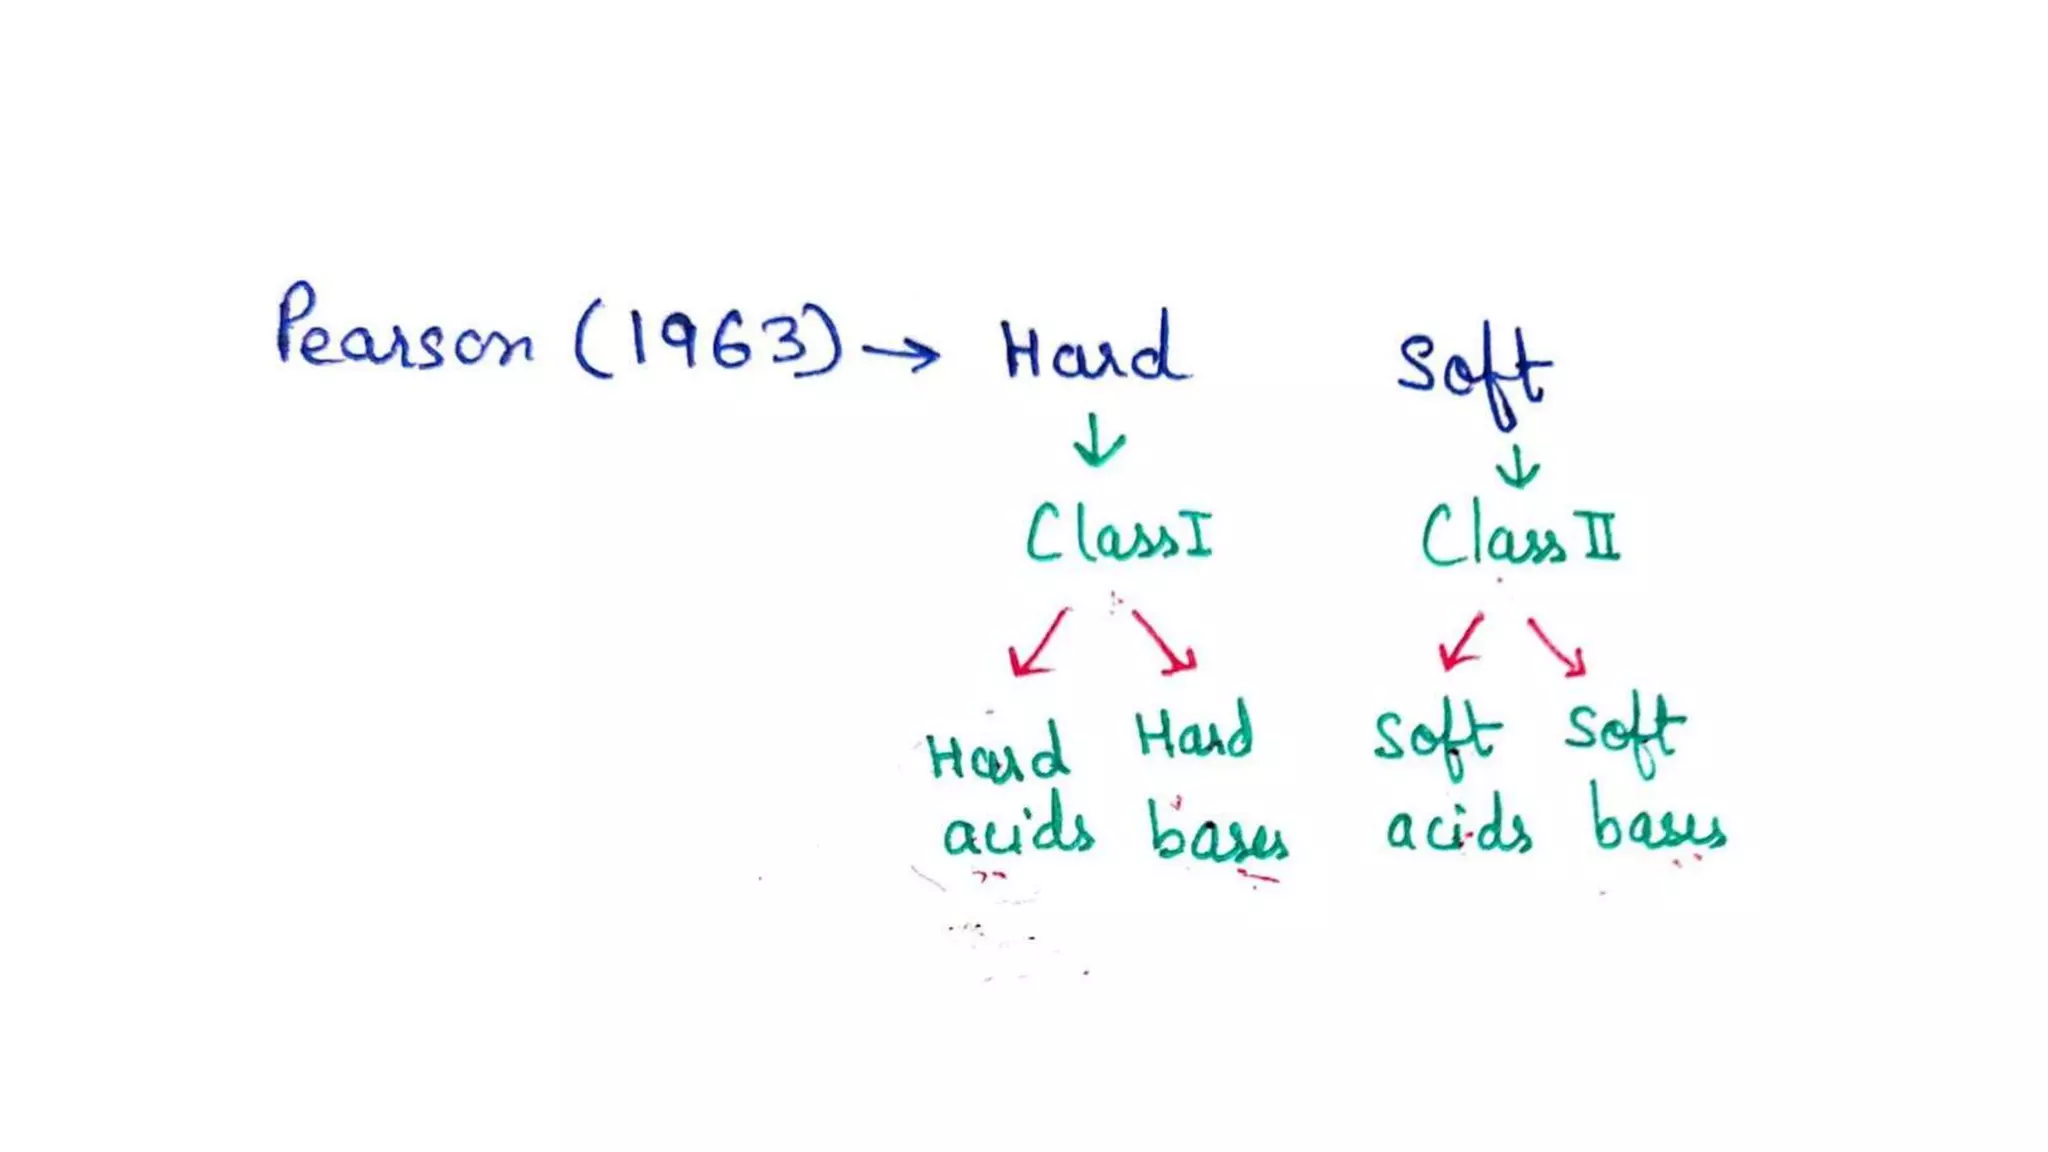 Pearson (1963) → Hard Soft
↓ ↓
Class I Class II
Hard Hard Soft Soft
acids bases acids bases